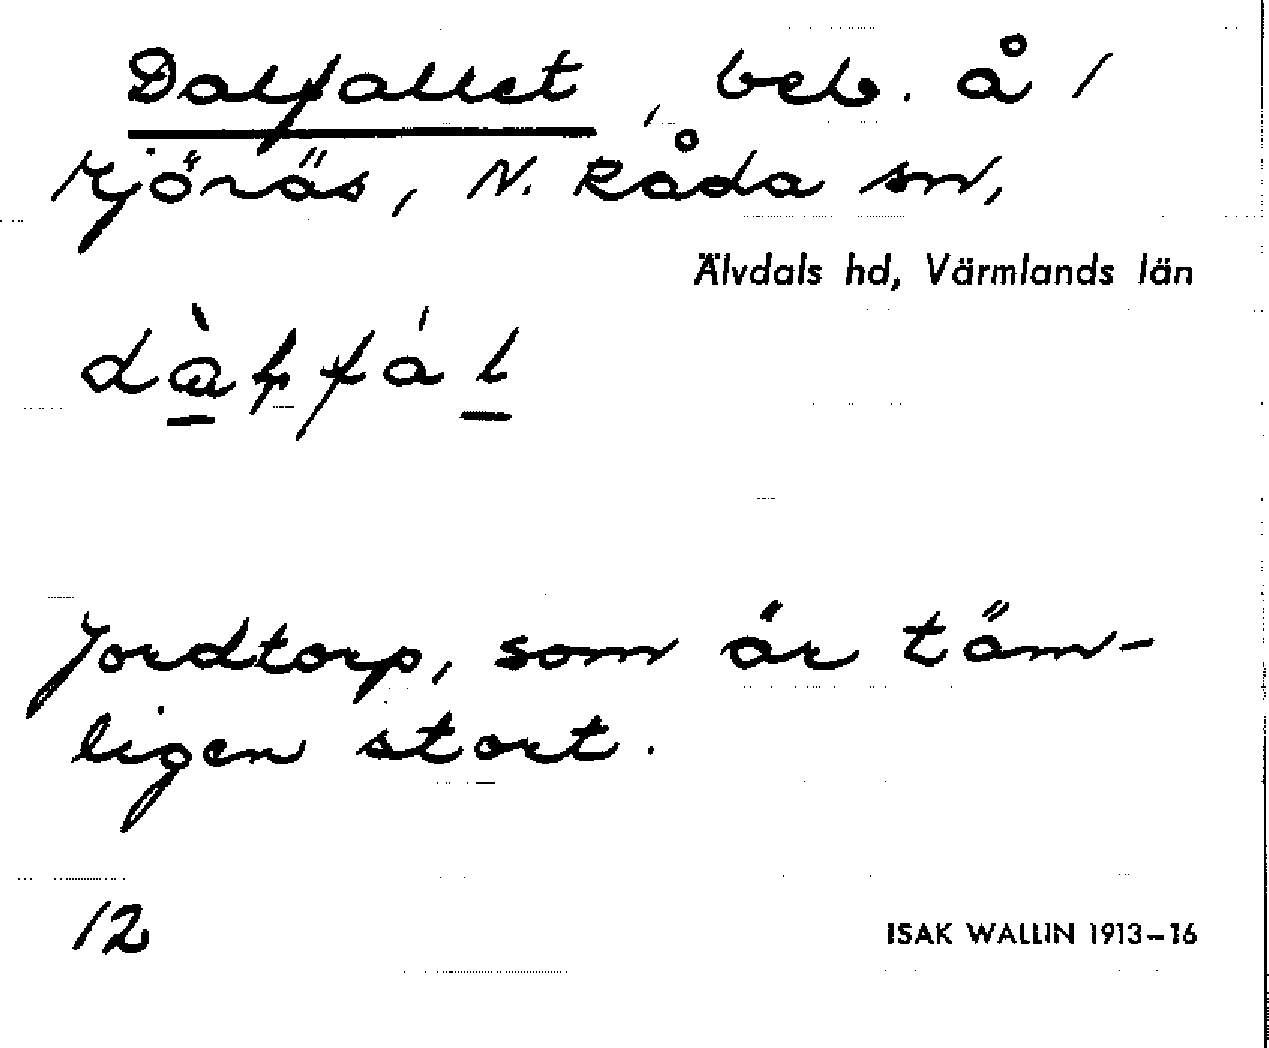 Dalfallet, beb. å /
Mjönäs, N. Råda sn,
Älvdals hd, Värmlands län
Jordtorp, som är täm-
ligen stort.
12
ISAK WALLIN 1913-16